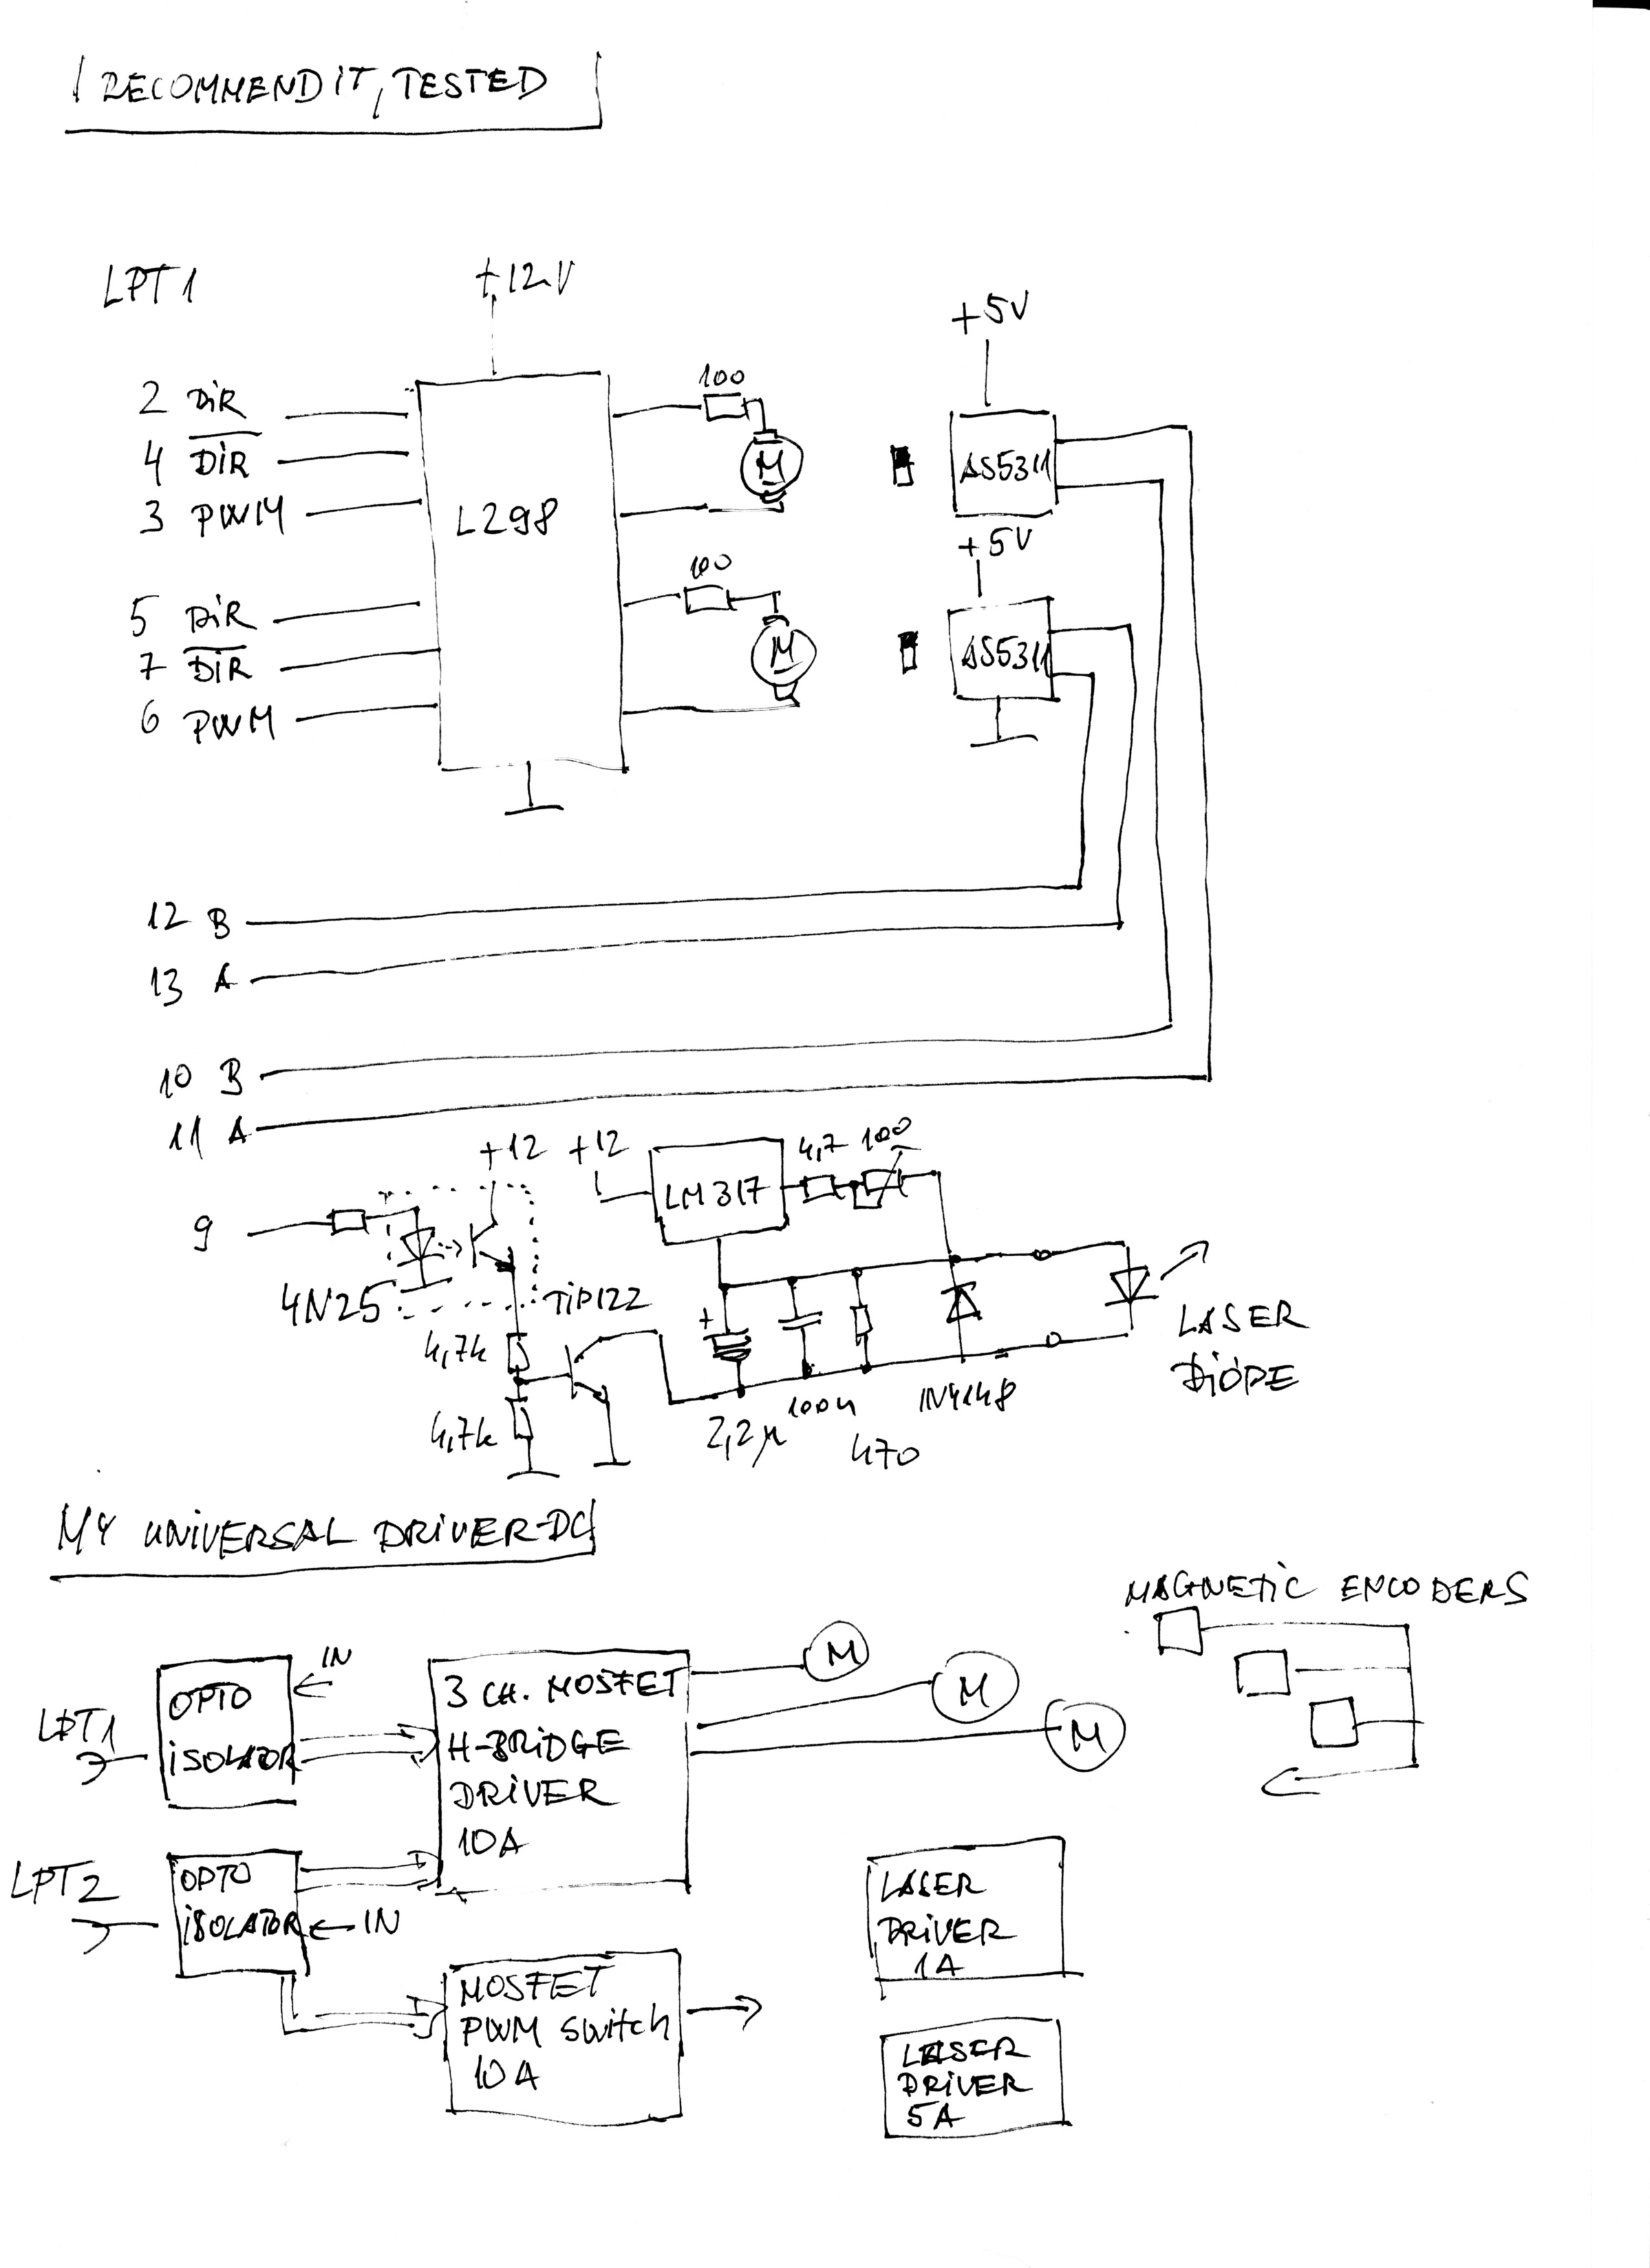 I RECOMMEND IT, TESTED
LPT1
+12V
+5V
2 DIR
4 DIR
3 PWM
5 DIR
7 DIR
6 PWM
L298
100
M
100
M
AS5311
+5V
AS5311
12 B
13 A
10 B
11 A
+12
+12
LM317
4,7
100
9
4N25
TIP122
4,7k
4,7k
+
2,2µ
100n
470
1N4148
LASER
DIODE
MY UNIVERSAL DRIVER-DC
MAGNETIC ENCODERS
LPT1
OPTO
ISOLATOR
IN
3 CH. MOSFET
H-BRIDGE
DRIVER
10A
M
M
M
LPT2
OPTO
ISOLATOR
IN
MOSFET
PWM SWITCH
10A
LASER
DRIVER
1A
LASER
DRIVER
5A